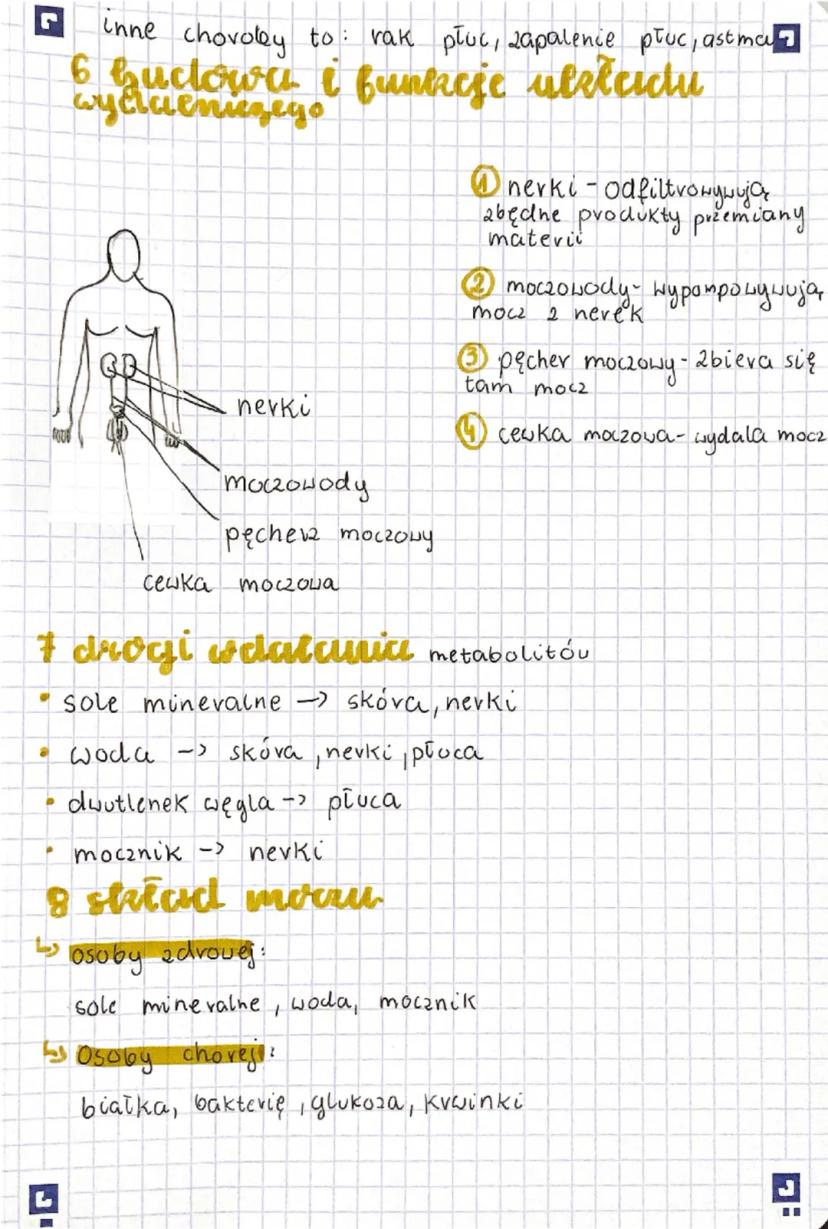 inne choroby to: rak płuc, zapalenie płuc, astma
6 budowa i funkcje układu
wydalniczego
① nerki - odfiltrowywują
zbędne produkty przemiany
materii
② moczowody - wypompowywują
mocz z nerek
③ pęcher moczowy - zbiera się
tam mocz
④ cewka moczowa - wydala mocz
nerki
moczowody
pęcherz moczowy
cewka moczowa
7 drogi wdalania metabolitów
• sole mineralne -> skóra, nerki
• woda -> skóra, nerki, płuca
• dwutlenek węgla -> płuca
• mocznik -> nerki
8 skład moczu
↳ osoby zdrowej:
sole mineralne, woda, mocznik
↳ Osoby chorej:
białka, bakterię, glukoza, krwinki